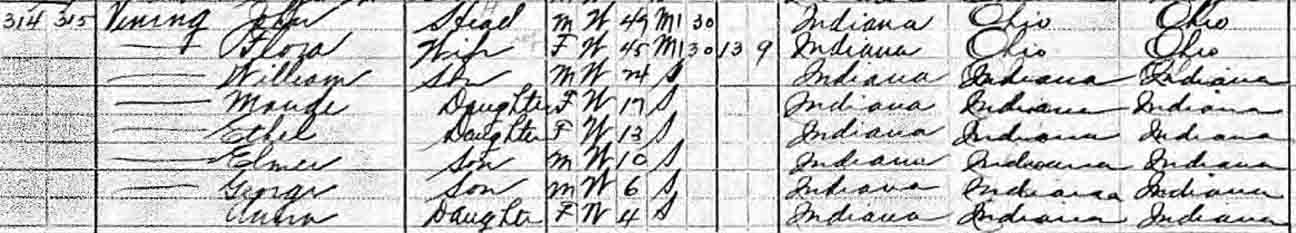 314 315 Vining John Head M W 49 M1 30 Indiana Ohio Ohio
— Flora Wife F W 45 M1 30 13 9 Indiana Ohio Ohio
— William Son M W 24 S Indiana Indiana Indiana
— Maude Daughter F W 17 S Indiana Indiana Indiana
— Ethel Daughter F W 13 S Indiana Indiana Indiana
— Elmer Son M W 10 S Indiana Indiana Indiana
— George Son M W 6 S Indiana Indiana Indiana
— Daughter F W 4 S Indiana Indiana Indiana